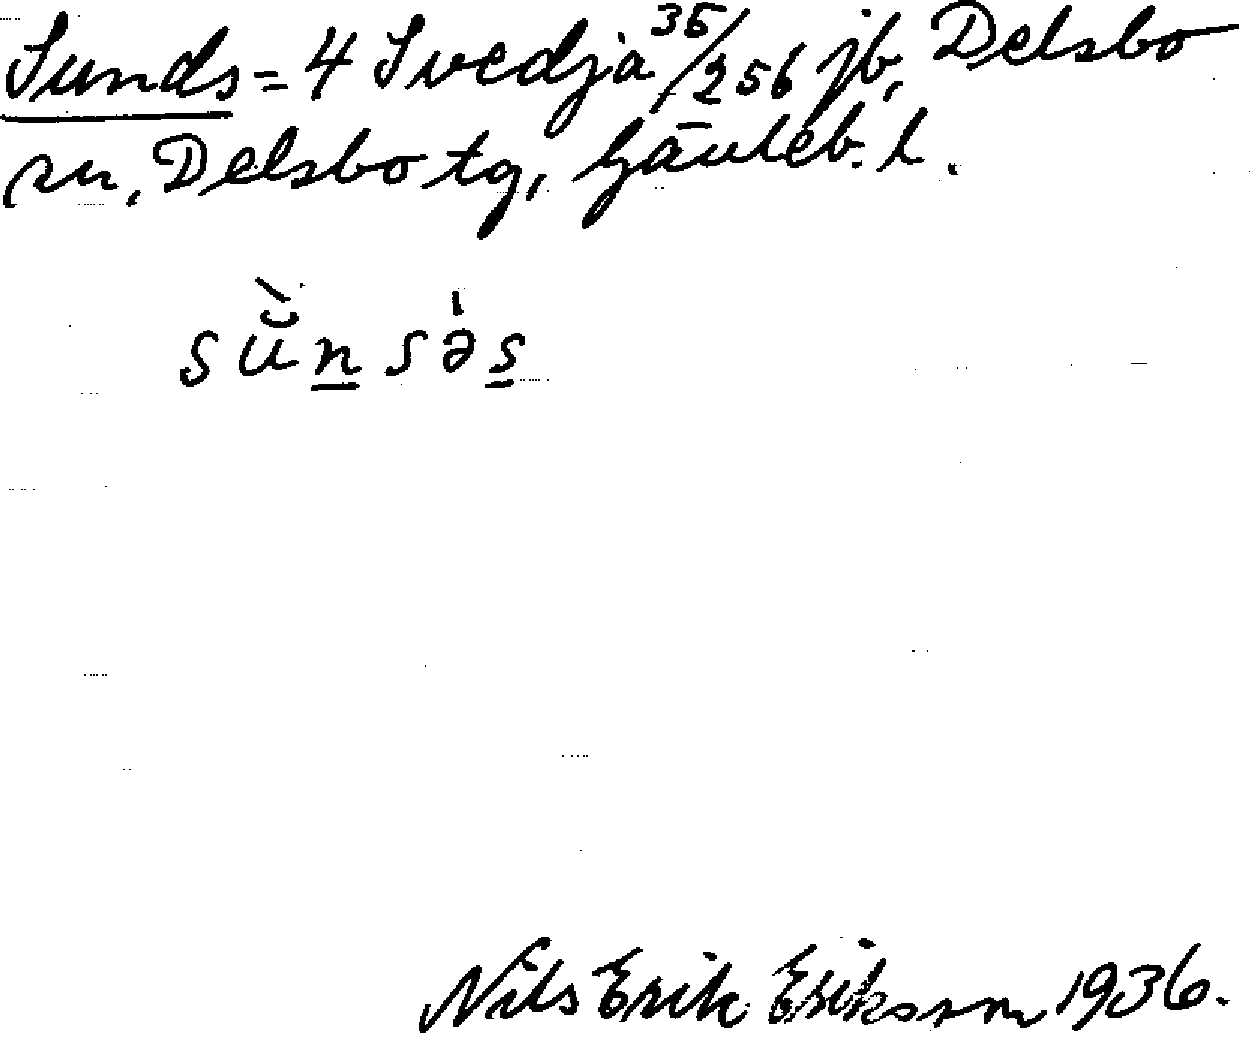 Sunds = 4 Svedja 35/256 jb, Delsbo
sn, Delsbo tg, Gävleb. l.
sŭ̀n sə̍s
Nils Erik Eriksson 1936.